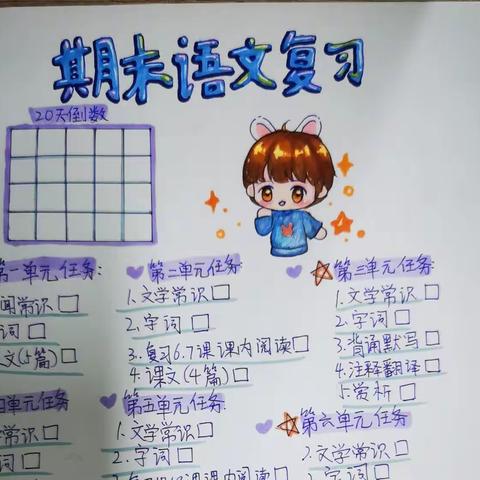 期末语文复习
20天倒数
第一单元任务:
闻常识□
词□
文(5篇)□
第二单元任务
1.文学常识□
2.字词□
3.复习6.7课课内阅读□
4.课文(4篇)□
第三单元任务
1.文学常识□
2.字词□
3.背诵默写□
4.注释翻译□
5.赏析□
四单元任务
常识□
词□
第五单元任务
1.文学常识□
2.字词□
课内阅读□
第六单元任务
2.文学常识□
2.字词□